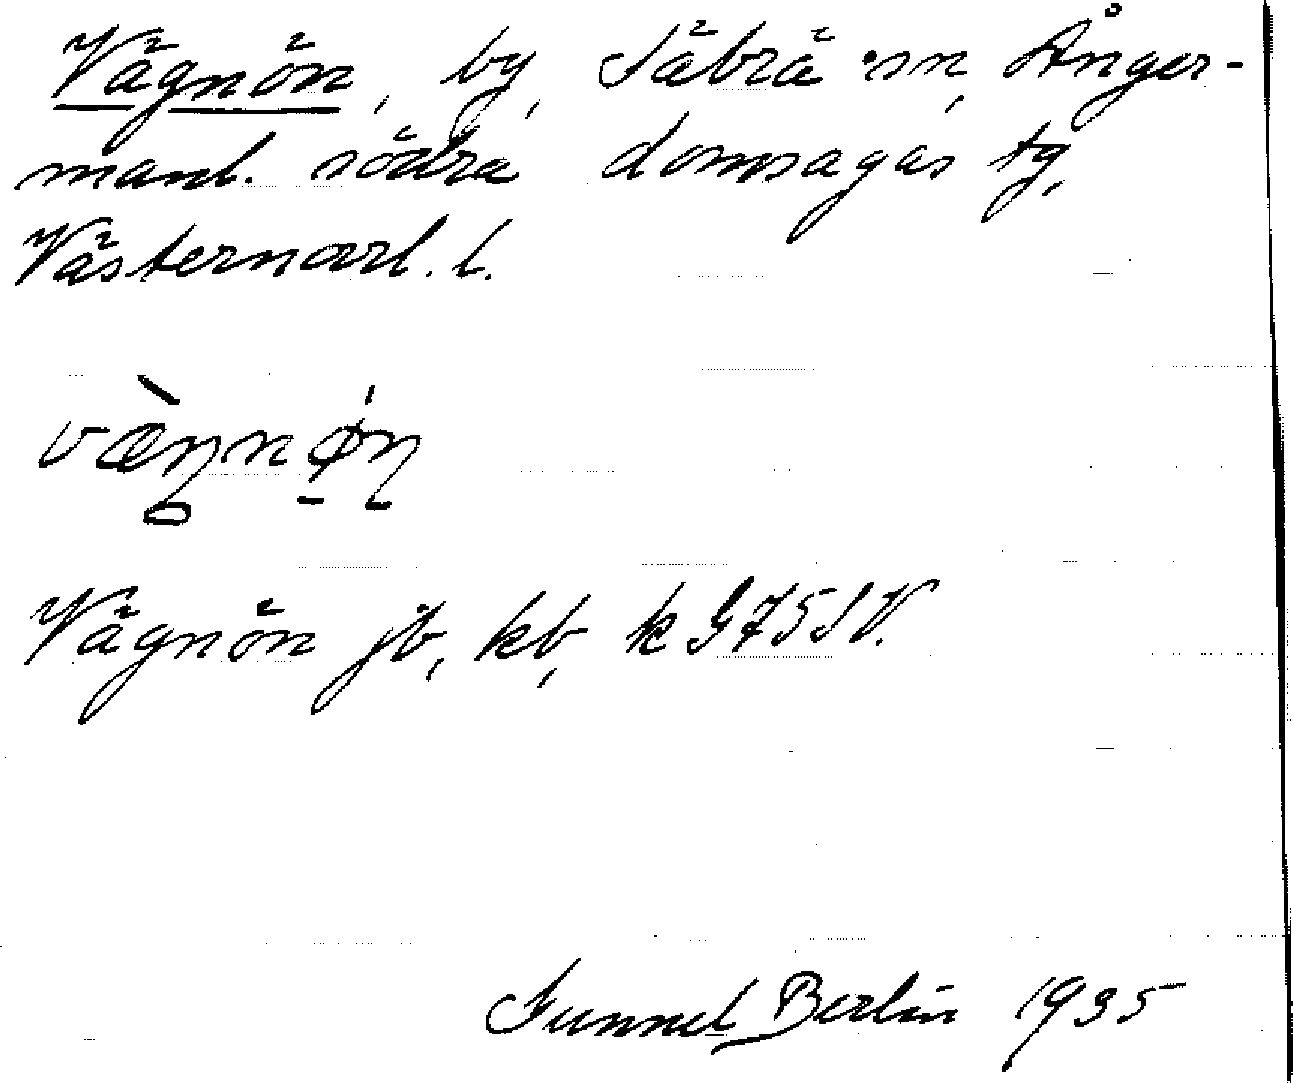 Vägnön, by, Säbrå sn, Ånger-
manl. södra domsagas tg,
Västernorrl. l.
væŋnøn
Vägnön jb, kb, k G75SV.
Gunnel Berlin 1935